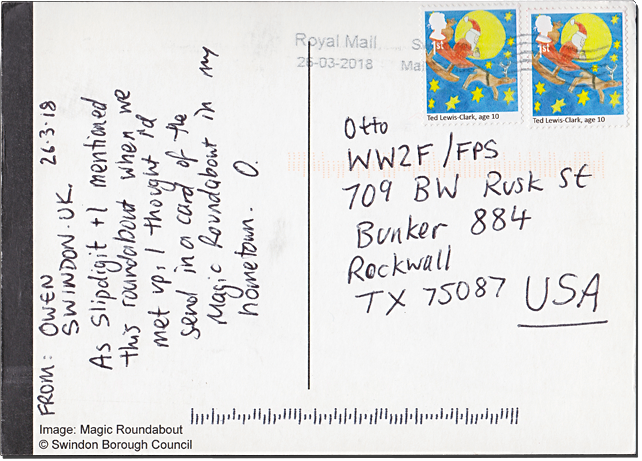 FROM: OWEN 26.3.18
SWINDON.UK.
As Slipdigit + I mentioned
this roundabout when we
met up, I thought I'd
send in a card of the
Magic Roundabout in my
hometown. O.
Royal Mail
26-03-2018
1st
Ted Lewis-Clark, age 10
1st
Ted Lewis-Clark, age 10
Otto
WW2F/FPS
709 BW Rusk St
Bunker 884
Rockwall
TX 75087 USA
Image: Magic Roundabout
© Swindon Borough Council